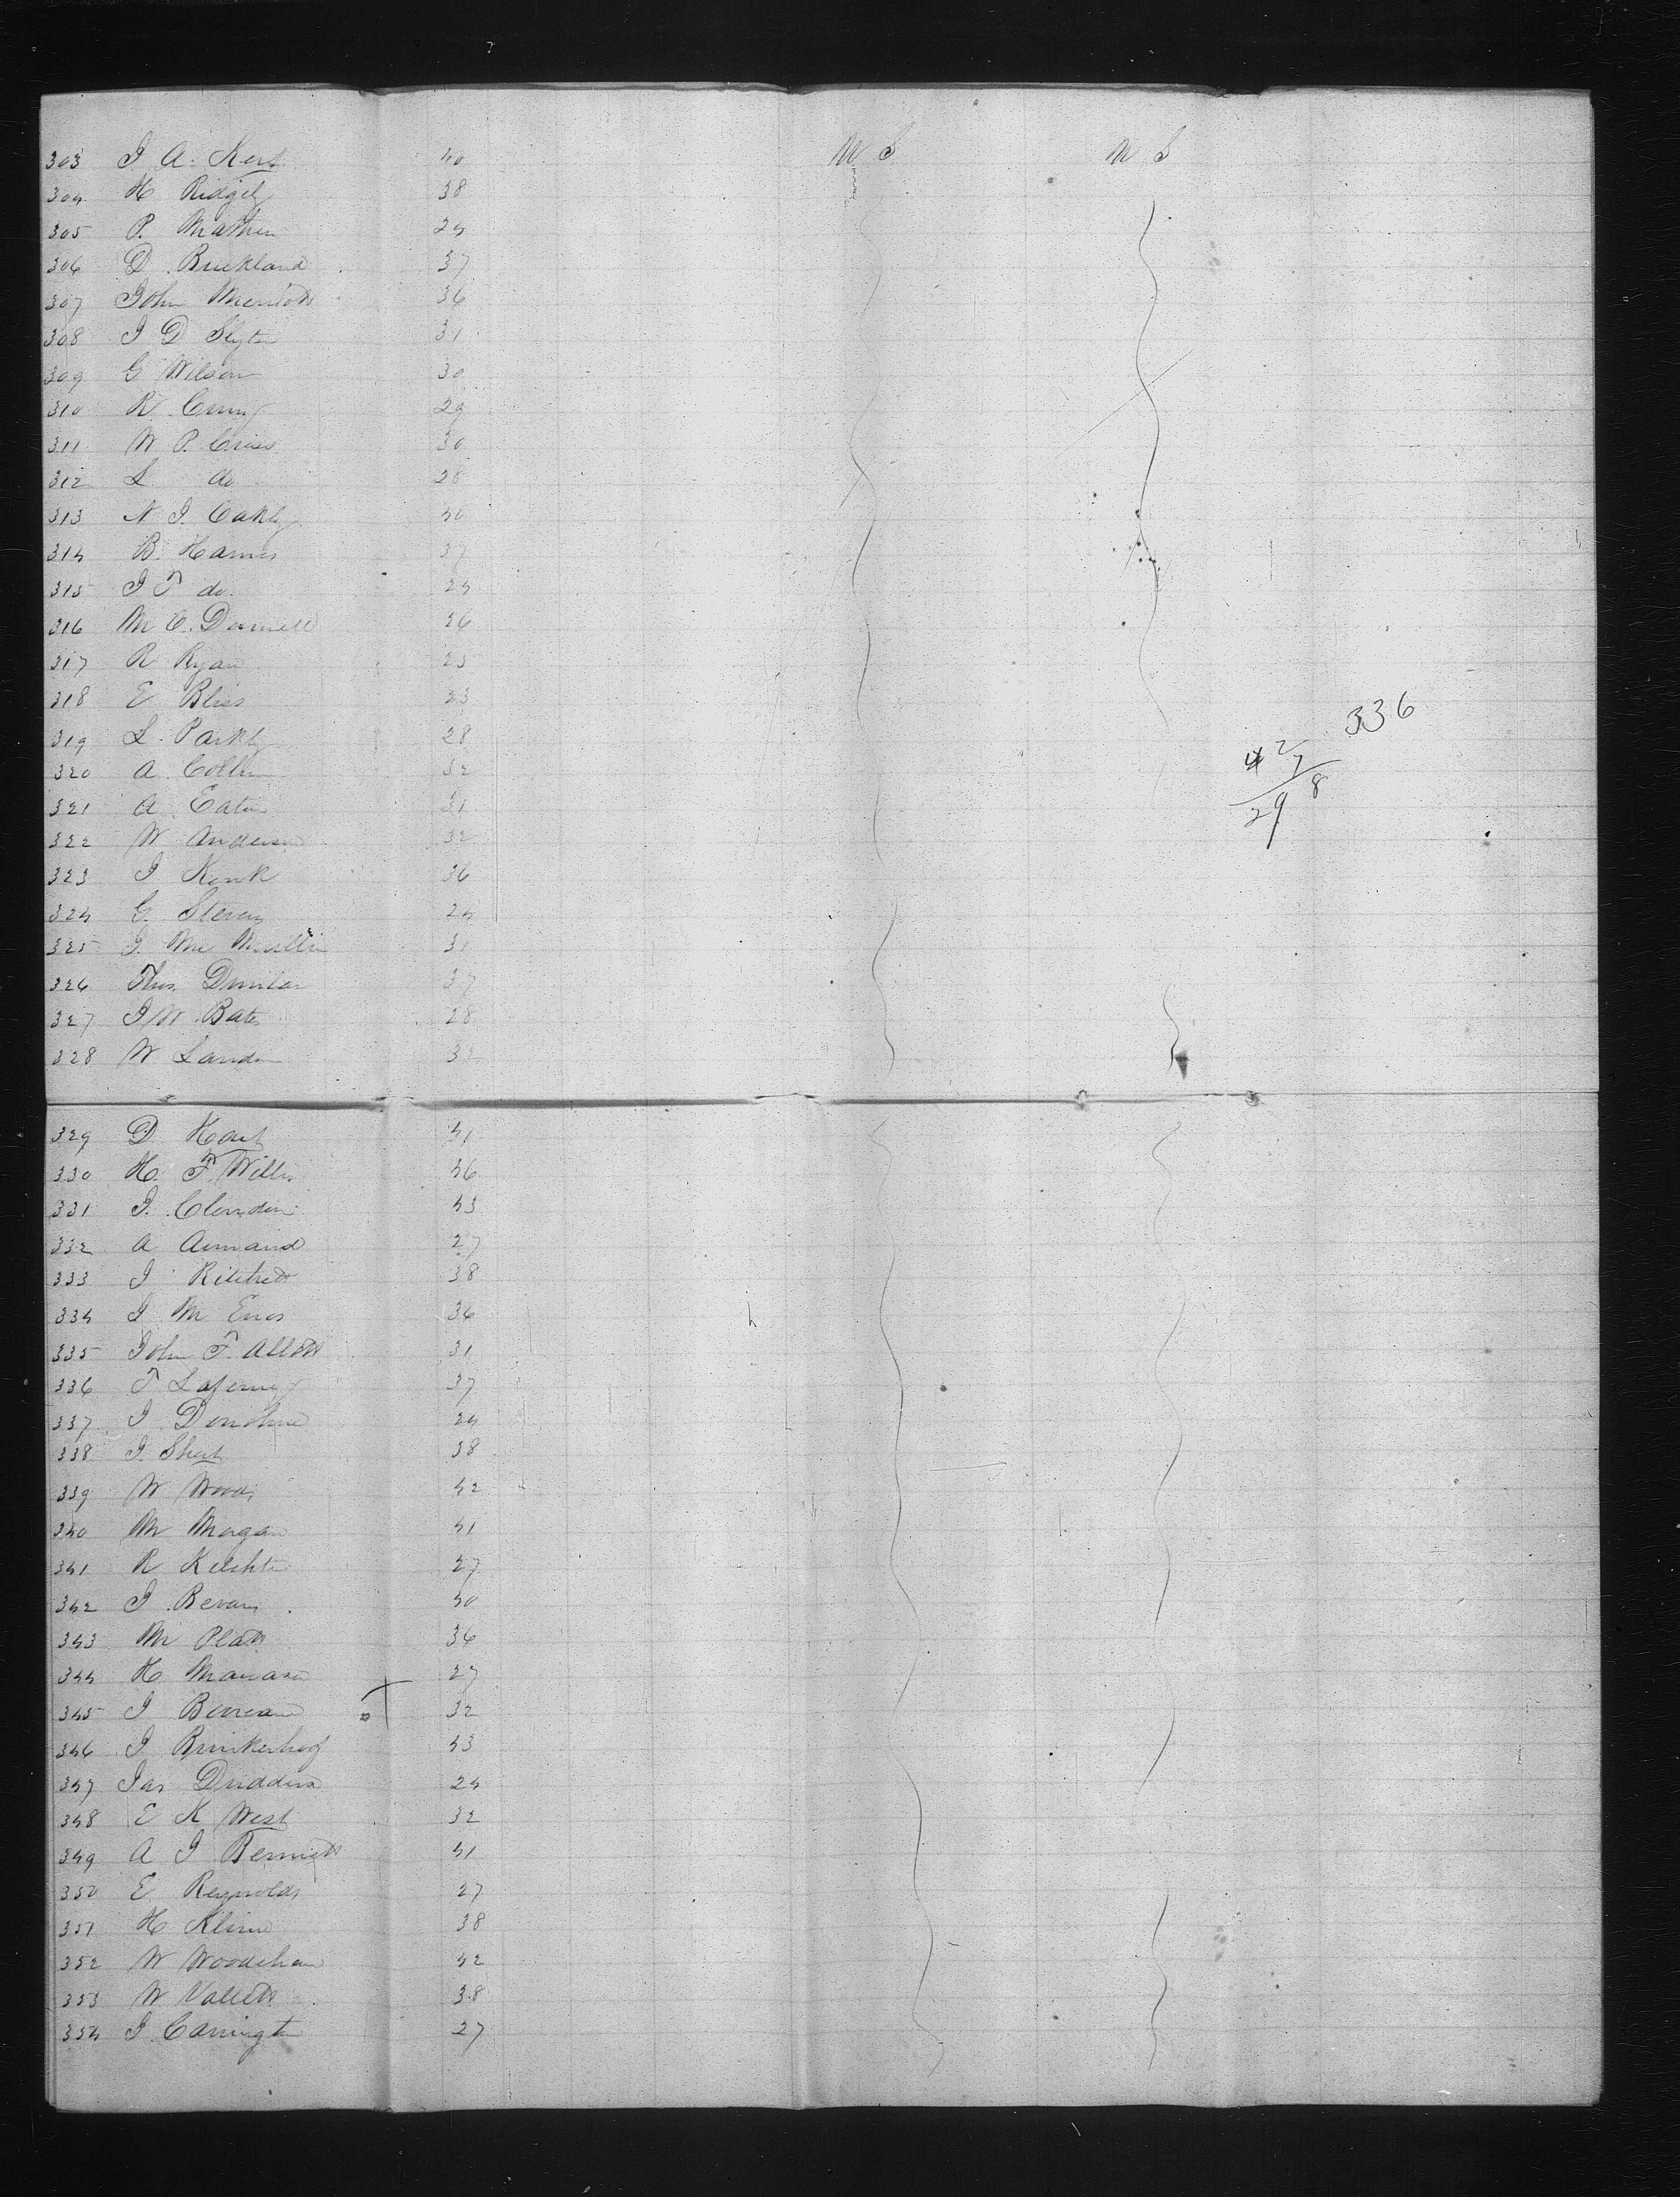 303 J A. Kert 40 M S M S
304 H Ridgely 38
305 P. Mathew 24
306 D. Buckland 37
307 John 36
308 J D Slyter 31
309 G Wilson 30
310 R 29
311 W P. Cross 30
312 L do 28
313 N J. Oakly 40
314 B. Harris 37
315 J F do. 24
316 M O. Donnell 26
317 R Ryan 25
318 E Bliss 23
336
319 L. Parkly 28
4 27
320 A. 32
29 8
321 A. Eaton 31
322 W Anderson 32
323 J Kink 36
324 G. Stevens 24
325 J. Mc 31
326 Thos. Dunlar 37
327 J W. Bates 28
328 W Landon 32
329 D. Hart 41
330 H. F. Willis 46
331 J. Clendin 43
332 A Armand 27
333 J 38
334 J M Enos 36
335 John F. Allott 31
336 F Laferny 37
337 J Donohue 24
338 J. Short 38
339 W Woods 42
340 M Morgan 41
341 R 27
342 J Bevans 40
343 M Platt 36
344 H 27
345 J 32
346 J. Brinkerhof 43
347 Jas 24
348 E K West 32
349 A J Bennett 41
350 E Reynolds 27
351 H Kline 38
352 W 42
353 W Vallett 38
354 J. Carrington 27